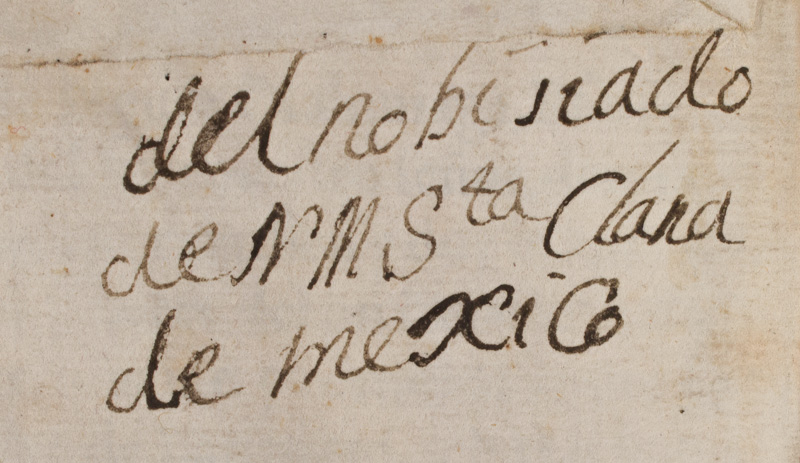 del nobisiado
de NMS^ta Clara
de mexico